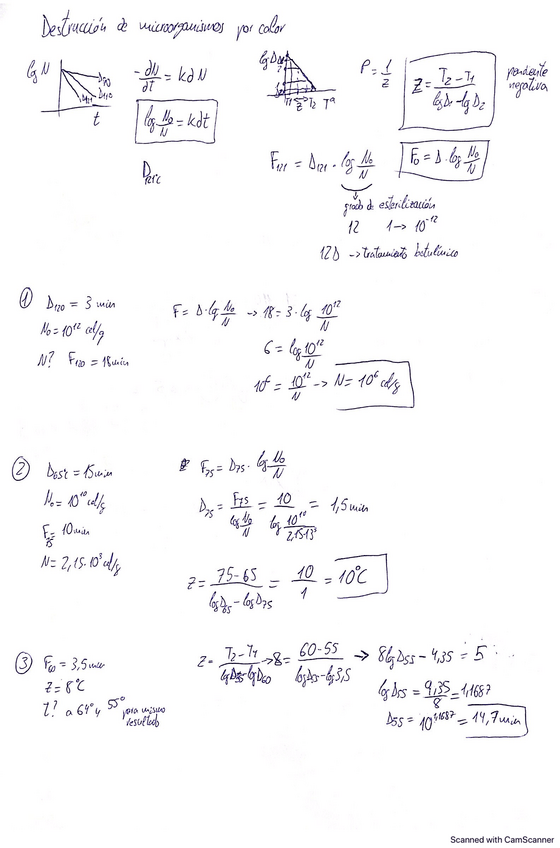 Destrucción de microorganismos por calor
log N
D110
D121
D120
t
-dN/dt = k d N
log N₀/N = k dt
D121°C
log D
T1 Z T2 Tª
P = 1/Z
Z = T₂ - T₁ / log D₁ - log D₂
pendiente negativa
F121 = D121 · log N₀/N
F₀ = D · log N₀/N
grado de esterilización
12 1 → 10⁻¹²
12D → tratamiento botulínico
① D120 = 3 min
N₀ = 10¹² cel/g
N? F120 = 18 min
F = D · log N₀/N → 18 = 3 · log 10¹²/N
6 = log 10¹²/N
10⁶ = 10¹²/N → N = 10⁶ cel/g
② D65°C = 15 min
N₀ = 10¹⁰ cel/g
F75 = 10 min
N = 2,15·10³ cel/g
F75 = D75 · log N₀/N
D75 = F75 / log N₀/N = 10 / log 10¹⁰/2,15·10³ = 1,5 min
Z = 75-65 / log D65 - log D75 = 10/1 = 10°C
③ F60 = 3,5 min
Z = 8°C
t? a 64° y 55° para mismo resultado
Z = T₂ - T₁ / log D55 - log D60 → 8 = 60-55 / log D55 - log 3,5 → 8 log D55 - 4,35 = 5
log D55 = 9,35/8 = 1,1687
D55 = 10^1,1687 = 14,7 min
Scanned with CamScanner